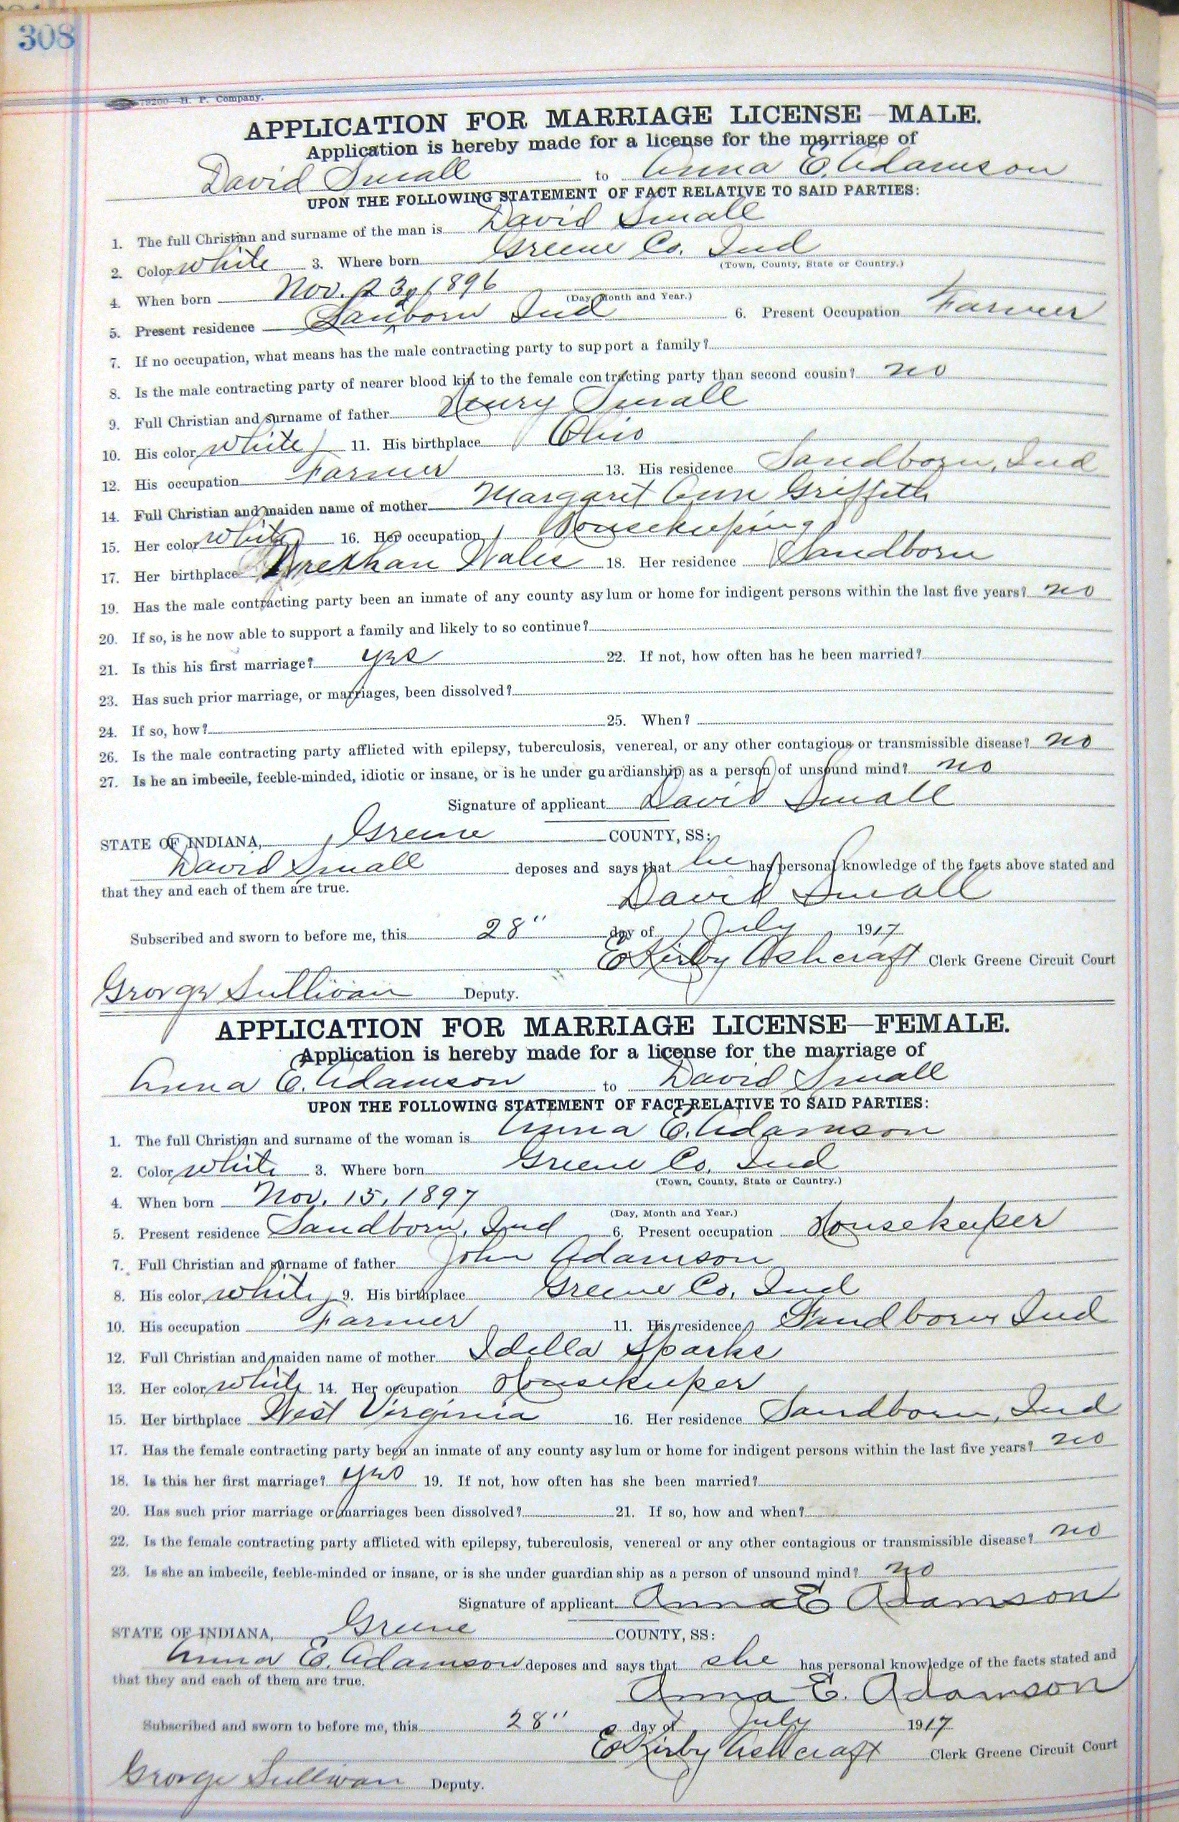 308
79200—H. P. Company.
APPLICATION FOR MARRIAGE LICENSE—MALE.
Application is hereby made for a license for the marriage of
David Small to Anna E. Adamson
UPON THE FOLLOWING STATEMENT OF FACT RELATIVE TO SAID PARTIES:
1. The full Christian and surname of the man is David Small
2. Color white 3. Where born Greene Co. Ind
(Town, County, State or Country.)
4. When born Nov. 23, 1896
(Day, Month and Year.)
5. Present residence Sandborn Ind 6. Present Occupation Farmer
7. If no occupation, what means has the male contracting party to support a family?
8. Is the male contracting party of nearer blood kin to the female contracting party than second cousin? no
9. Full Christian and surname of father Henry Small
10. His color white 11. His birthplace Ohio
12. His occupation Farmer 13. His residence Sandborn, Ind
14. Full Christian and maiden name of mother Margaret Ann Griffeth
15. Her color white 16. Her occupation Housekeeping
17. Her birthplace Wrexhan Wales 18. Her residence Sandborn
19. Has the male contracting party been an inmate of any county asylum or home for indigent persons within the last five years? no
20. If so, is he now able to support a family and likely to so continue?
21. Is this his first marriage? yes 22. If not, how often has he been married?
23. Has such prior marriage, or marriages, been dissolved?
24. If so, how? 25. When?
26. Is the male contracting party afflicted with epilepsy, tuberculosis, venereal, or any other contagious or transmissible disease? no
27. Is he an imbecile, feeble-minded, idiotic or insane, or is he under guardianship as a person of unsound mind? no
Signature of applicant David Small
STATE OF INDIANA, Greene COUNTY, SS:
David Small deposes and says that he has personal knowledge of the facts above stated and
that they and each of them are true.
David Small
Subscribed and sworn to before me, this 28" day of July 1917
E Kirby Ashcraft Clerk Greene Circuit Court
George Sullivan Deputy.
APPLICATION FOR MARRIAGE LICENSE—FEMALE.
Application is hereby made for a license for the marriage of
Anna E. Adamson to David Small
UPON THE FOLLOWING STATEMENT OF FACT RELATIVE TO SAID PARTIES:
1. The full Christian and surname of the woman is Anna E. Adamson
2. Color white 3. Where born Greene Co. Ind
(Town, County, State or Country.)
4. When born Nov. 15, 1897
(Day, Month and Year.)
5. Present residence Sandborn, Ind 6. Present occupation Housekeeper
7. Full Christian and surname of father John Adamson
8. His color white 9. His birthplace Greene Co, Ind
10. His occupation Farmer 11. His residence Sandborn Ind
12. Full Christian and maiden name of mother Idella Sparks
13. Her color white 14. Her occupation Housekeeper
15. Her birthplace West Virginia 16. Her residence Sandborn, Ind
17. Has the female contracting party been an inmate of any county asylum or home for indigent persons within the last five years? no
18. Is this her first marriage? yes 19. If not, how often has she been married?
20. Has such prior marriage or marriages been dissolved? 21. If so, how and when?
22. Is the female contracting party afflicted with epilepsy, tuberculosis, venereal or any other contagious or transmissible disease? no
23. Is she an imbecile, feeble-minded or insane, or is she under guardianship as a person of unsound mind? no
Signature of applicant Anna E Adamson
STATE OF INDIANA, Greene COUNTY, SS:
Anna E. Adamson deposes and says that she has personal knowledge of the facts stated and
that they and each of them are true.
Anna E. Adamson
Subscribed and sworn to before me, this 28" day of July 1917
E Kirby Ashcraft Clerk Greene Circuit Court
George Sullivan Deputy.